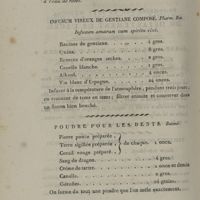 INFUSUM VINEUX DE GENTIANE COMPOSÉ. Pharm. Ba.
Infusum amarum cum spiritu vini.
Racine de gentiane . . . 4 gros.
Ecorces d'oranges sèches . . . gros.
Canelle blanche . . . 1 gros.
Alkool . . . 4 onces.
Vin blanc d'Espagne . . . onces.
Infusez à la température de l'atmosphère, pendant trois jours,
en remuant de tems en tems; filtrez ensuite et conservez dans
un flacon bien bouché.
POUDRE POUR LES DENTS.
Pierre ponce préparée
Terre sigillée préparée } de chaque. 1 once.
Corail rouge préparé
Sang de dragon . . . gros.
Crême de tartre . . . once et demie.
Canelle . . . gros.
Gérofles . . . grains.
On forme du tout une poudre que l'on mêle exactement.